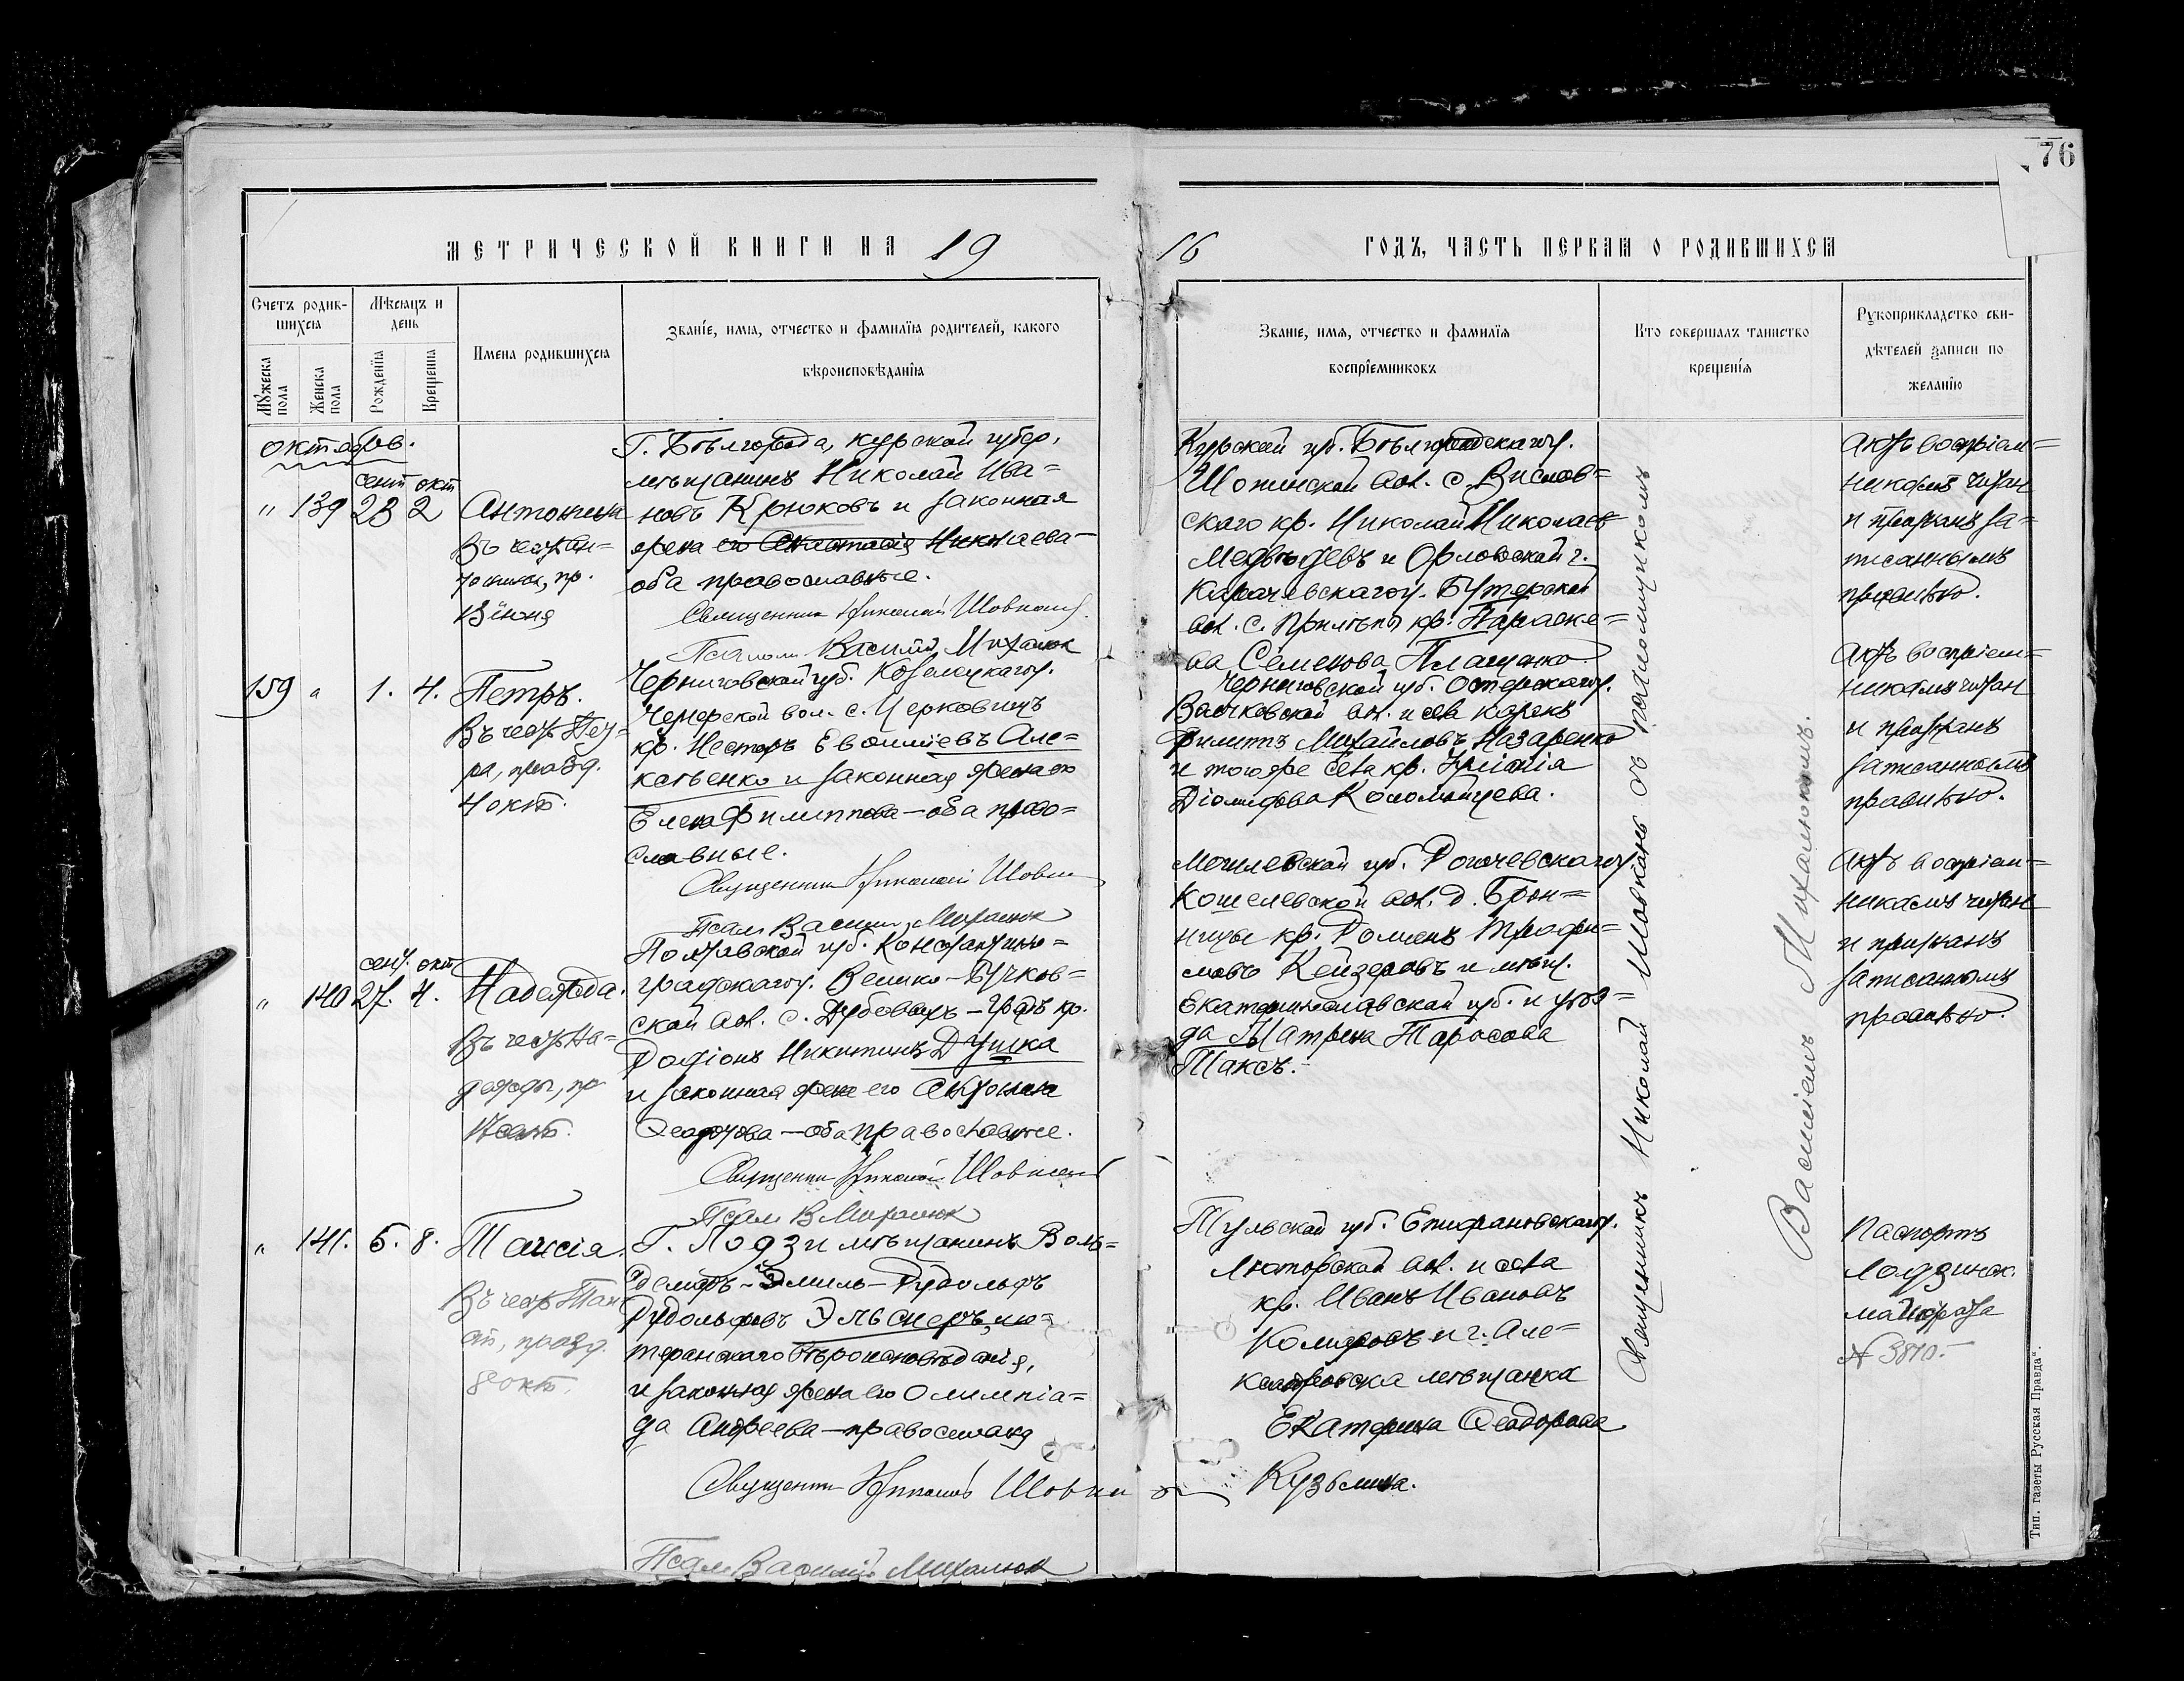 76
МЕТРИЧЕСКОЙ КНИГИ НА 19
16 ГОДЪ, ЧАСТЬ ПЕРВАЯ О РОДИВШИХСЯ
Счетъ родив-
шихся
Мѣсяцъ и
день
Мужеска
пола
Женска
пола
Рожденія
Крещенія
Имена родившихся
Званіе, имя, отчество и фамилія родителей, какого
вѣроисповѣданія
Званіе, имя, отчество и фамилія
воспріемниковъ
Кто совершалъ таинство
крещенія
Рукоприкладство сви-
дѣтелей записи по
желанію
октябрь.
сент окт
" 139 28 2 Антонина
Въ честь Ан-
тонины, пр.
13 іюня
Г. Бѣлгорода, курской губер,
мѣщанинъ Николай Ива=
новъ Крюковъ и законная
жена его Анастасія Николаева—
оба православные.
Священник Николай Шовкань
Псалом Василій Михалюк
Курской губ. Бѣлгородскаго у.
Шопинской вол. с. Вислов=
скаго кр. Николай Николаев
Медвѣдевъ и Орловской г.
Карачевскаго у. Бутерской
вол. с. Прилѣпы кр. Параске=
ва Семенова Плащенко
Актъ воспріем=
никамъ читан
и признанъ за=
писаннымъ
правильно.
159 " 1. 4. Петръ.
Въ честь Пет=
ра, празд.
4 окт.
Черниговской губ. Козелецкаго у.
Чемерской вол. с. Церковищъ
кр. Несторъ Евфиміевъ Але=
ксѣенко и законная жена его
Елена Филиппова—оба право=
славные.
Священник Николай Шовкан
Псал. Василій Михалюк
Черниговской губ. Остерскаго у.
Филиппъ Михайловъ Назаренко
и того же села кр. Хрисанія
Діомидова Коломійцева.
Актъ воспріем=
никамъ читан
и признанъ
записаннымъ
правильно.
сент. окт
" 140 27. 4. Надежда.
Въ честь На=
дежды, пр
17 сент.
Полтавской губ. Константино=
градскаго у. Велико-Бучков=
ской вол. с. Дубовыхъ-Грядъ кр.
Родіонъ Никитинъ Душка
и законная жена его Антонина
Ѳеодорова—оба православные.
Священник Николай Шовкан
Псал. В Михалюк
Могилевской губ. Рогачевскаго у.
Кошелевской вол. д. Брон=
ницы кр. Романъ Трофи=
мовъ Кейзеровъ и мѣщ.
Екатеринославской губ. и уѣз=
да Матрена Тарасова
Таксъ.
Актъ воспріем=
никамъ читан
и признанъ
записаннымъ
правильно.
" 141. 5. 8. Таисія
Въ честь Таи
сіи, празд.
8 окт.
Г. Лодзи мѣщанинъ Воль=
демаръ-Эмиль-Рудольфъ
Рудольфовъ Эльснеръ, лю=
теранскаго вѣроисповѣданія,
и законная жена его Олимпіа=
да Андреева—православная
Священник Николай Шовкан
Псал. Василій Михалюк
Тульской губ. Епифановскаго у.
Люторской вол. и села
кр. Иванъ Ивановъ
и г. Але=
ксандровска мѣщанка
Екатерина Ѳеодорова
Кузьмина.
Паспортъ
Лодзинск.
магистрата
№ 3810.
Священникъ Николай Шовкань съ псаломщикомъ
Василіемъ Михалюкомъ.
Тип. газеты „Русская Правда“.